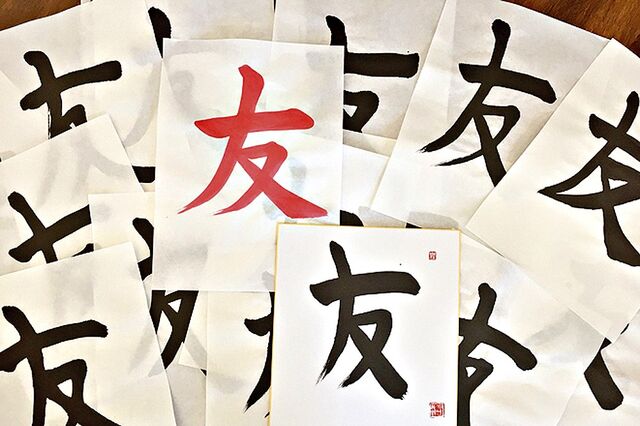 友
友
友
友
友
友
友
友